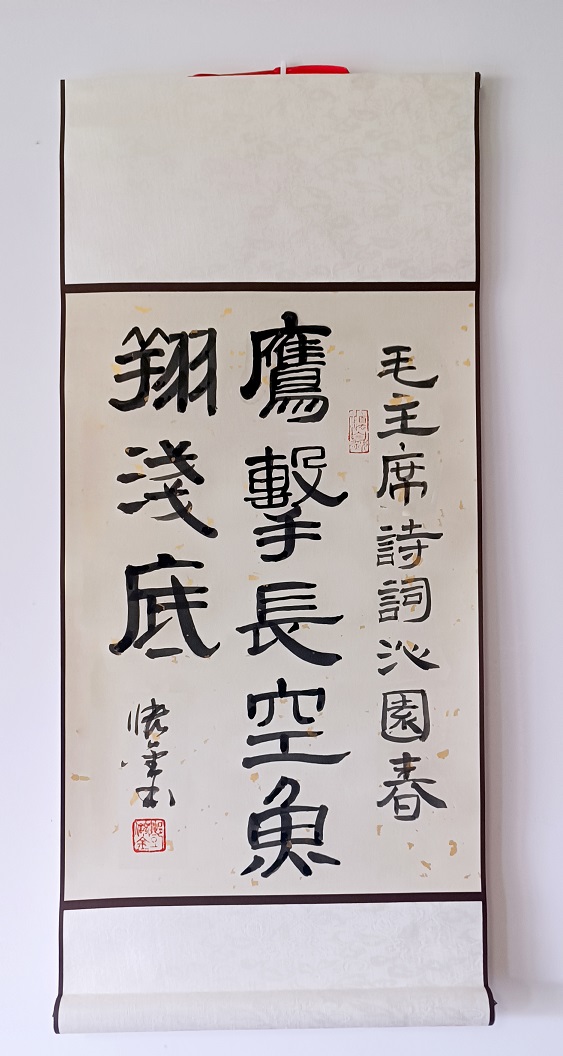 毛主席詩詞沁園春
鷹擊長空魚
翔淺底